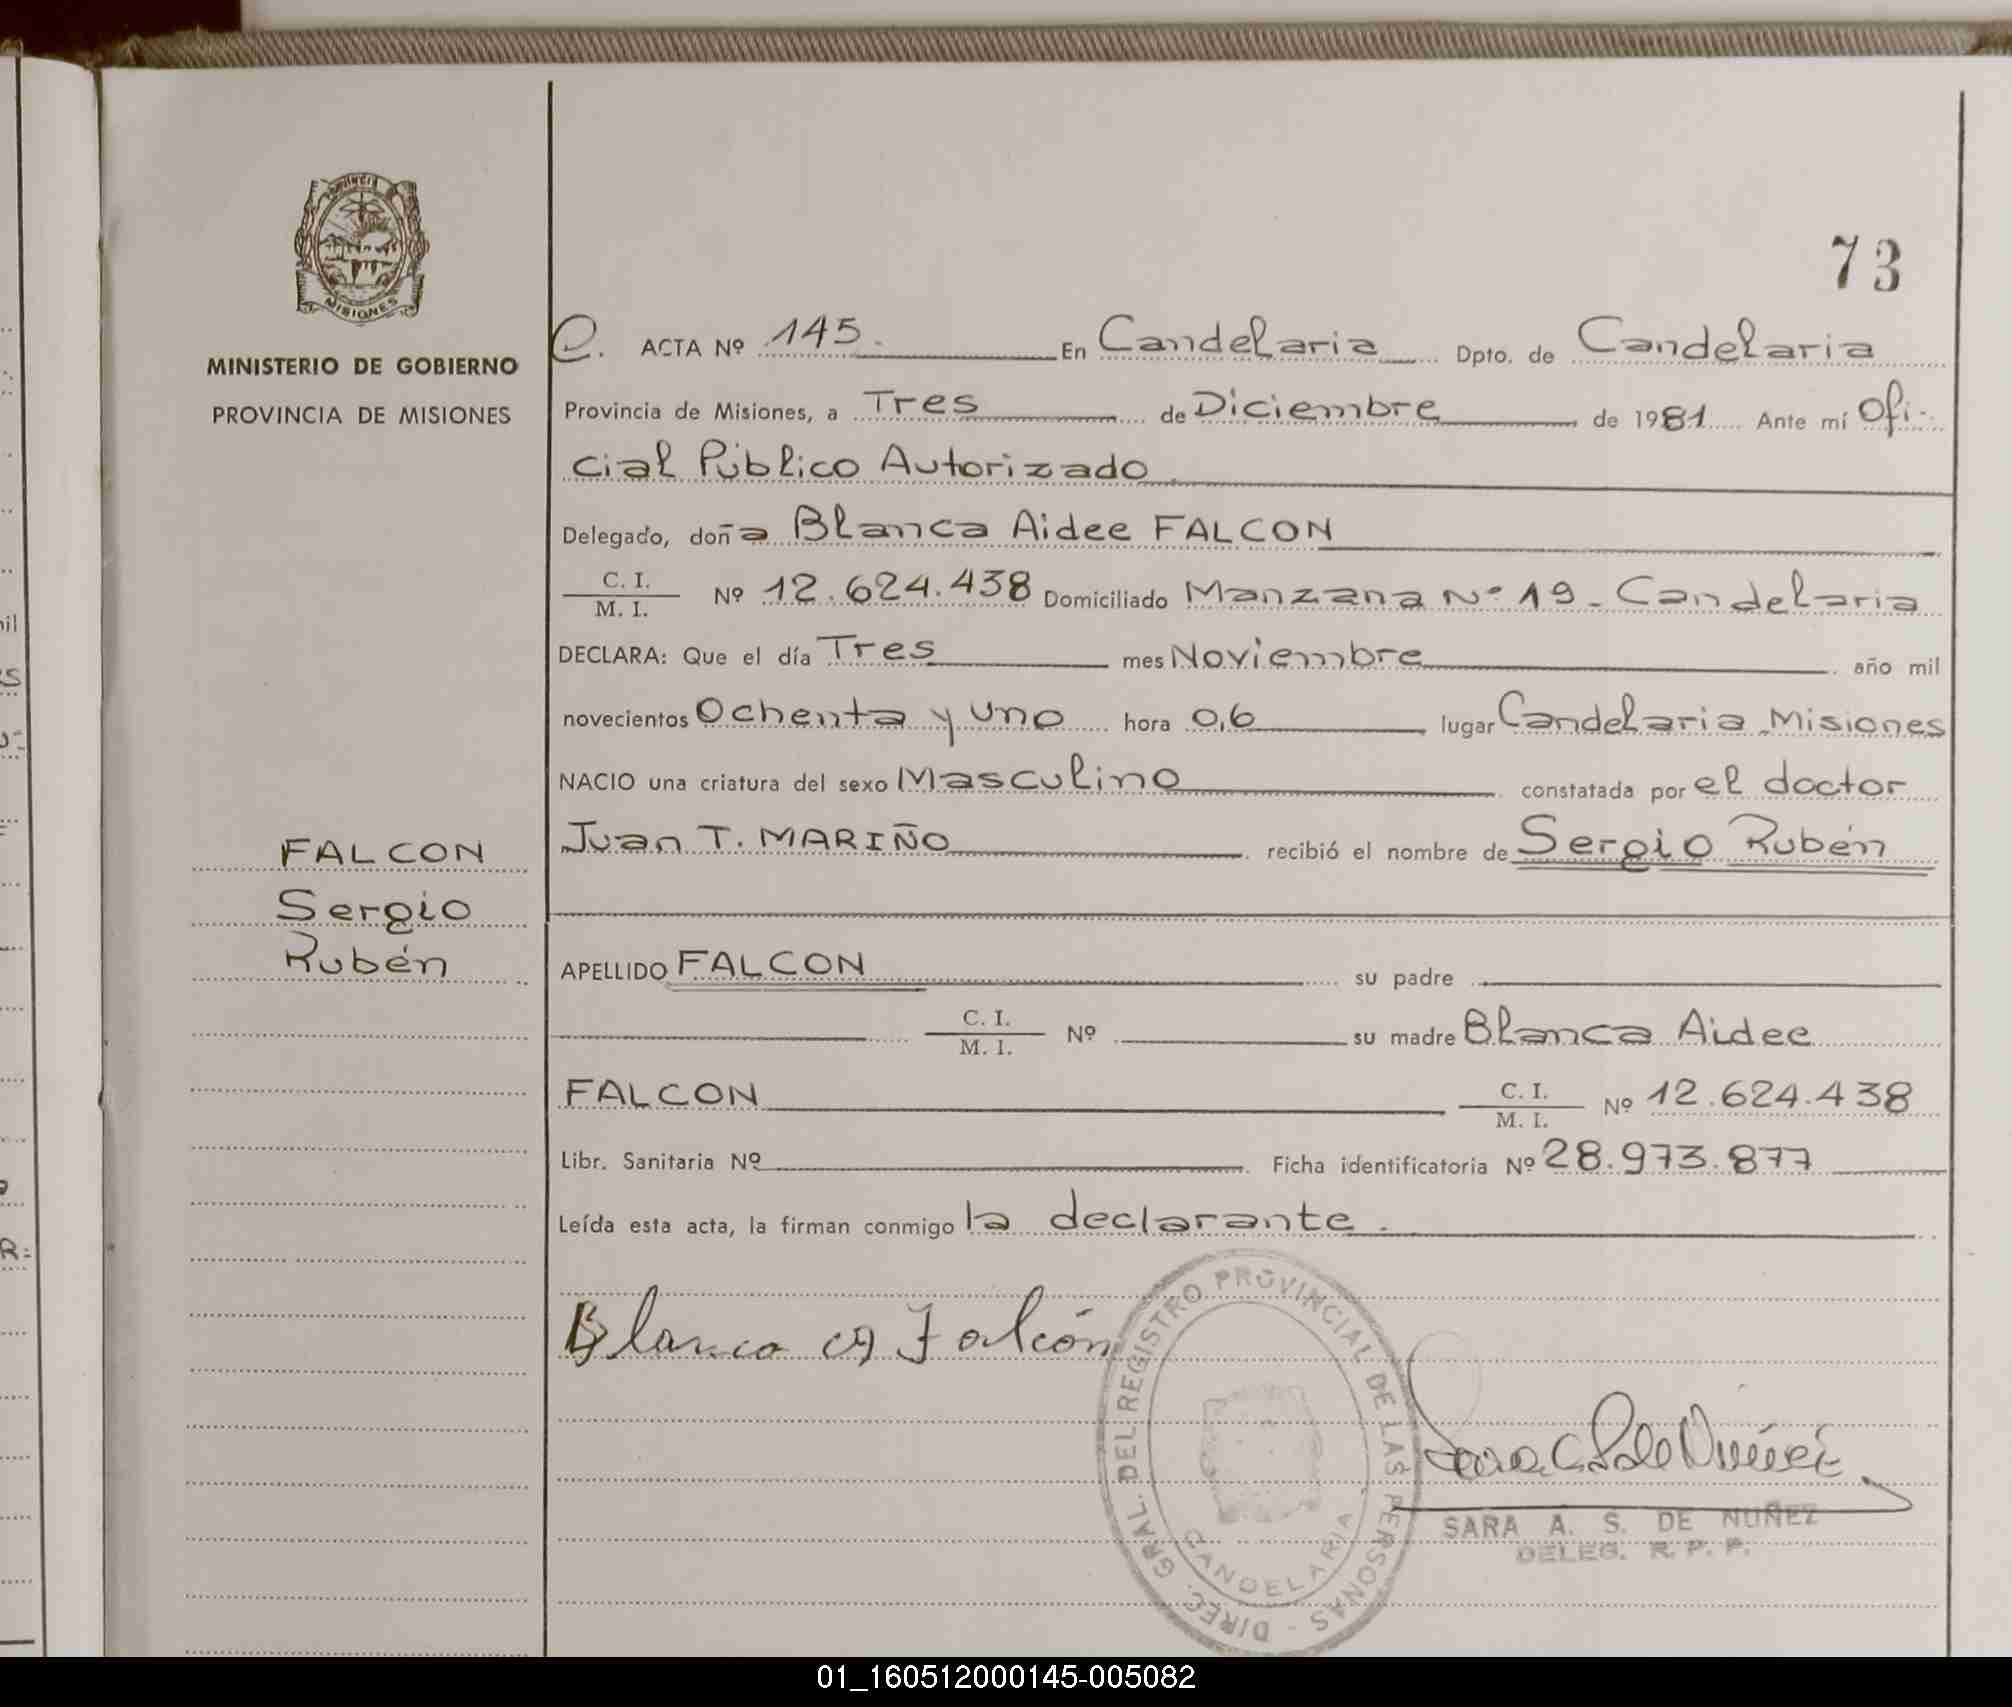 PROVINCIA
MISIONES
MINISTERIO DE GOBIERNO
PROVINCIA DE MISIONES
FALCON
Sergio
Rubén
73
C. ACTA Nº 145. En Candelaria Dpto. de Candelaria
Provincia de Misiones, a Tres de Diciembre de 1981 Ante mí Ofi-
cial Público Autorizado
Delegado, doña Blanca Aidee FALCON
C. I.
M. I. Nº 12.624.438 Domiciliado Manzana Nº 19 - Candelaria
DECLARA: Que el día Tres mes Noviembre año mil
novecientos Ochenta y Uno hora 0,6 lugar Candelaria - Misiones
NACIO una criatura del sexo Masculino constatada por el doctor
Juan T. MARIÑO recibió el nombre de Sergio Rubén
APELLIDO FALCON su padre
C. I.
M. I. Nº su madre Blanca Aidee
FALCON C. I.
M. I. Nº 12.624.438
Libr. Sanitaria Nº Ficha identificatoria Nº 28.973.877
Leída esta acta, la firman conmigo la declarante.
Blanca A Falcón
DIREC. GRAL. DEL REGISTRO PROVINCIAL DE LAS PERSONAS -
CANDELARIA
Sara de Nuñez
SARA A. S. DE NUÑEZ
DELEG. R. P. P.
01_160512000145-005082